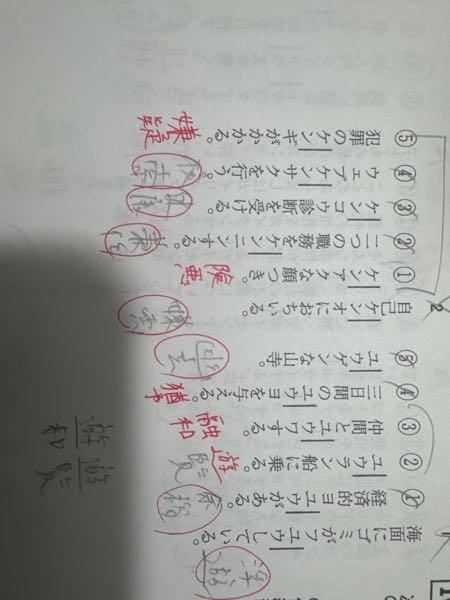 海面にゴミがフユウしている。
浮遊
① 経済的ヨユウがある。
余裕
② ユウラン船に乗る。
遊覧
③ 仲間とユウワする。
融和
④ 三日間のユウヨを与える。
猶予
⑤ ユウゲンな山寺。
幽玄
2 自己ケンオにおちいる。
嫌悪
① ケンアクな顔つき。
険悪
② 二つの職務をケンニンする。
兼任
③ ケンコウ診断を受ける
健康
④ ウェブケンサクを行う。
検索
⑤ 犯罪のケンギがかかる。
嫌疑
遊覧